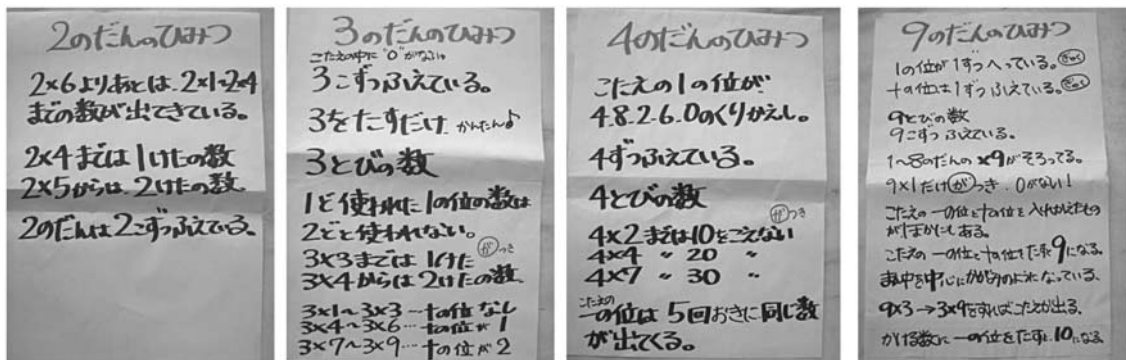 2のだんのひみつ
2×6よりあとは、2×1~2×4
までの数が出てきている。
2×4までは1けたの数
2×5からは、2けたの数
2のだんは2こずつふえている。
3のだんのひみつ
こたえの中に"0"がない。
3こずつふえている。
3をたすだけ かんたん♪
3とびの数
1ど使われた1の位の数は
2どと使われない。
がつき
3×3までは1けた
3×4からは2けたの数
3×1~3×3…十の位なし
3×4~3×6…十の位が1
3×7~3×9…十の位が2
4のだんのひみつ
こたえの1の位が、
4.8.2.6.0のくりかえし。
4ずつふえている。
4とびの数
がつき
4×2までは10をこえない
4×4 〃 20 〃
4×7 〃 30 〃
こたえの
一の位は5回おきに同じ数
が出てくる。
9のだんのひみつ
1の位が1ずつへっている。ぎゃく
十の位は1ずつふえている。ぎゃく
9とびの数
9こずつふえている。
1~8のだんの×9がそろってる。
9×1だけがつき、0がない!
こたえの一の位と十の位を入れかえたもの
がほかにもある。
こたえの一の位と十の位をたすと9になる。
まん中を中心にかがみのようになっている。
9×3→3×9をすればこたえが出る。
かける数に一の位をたすと、10になる